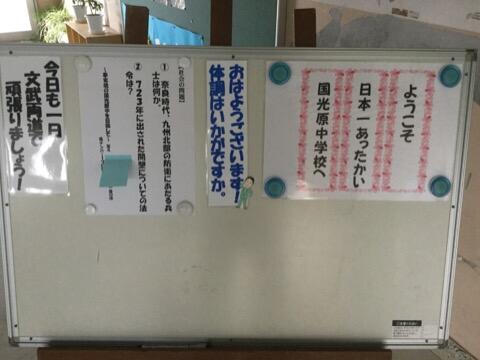 ようこそ
日本一あったかい
国光原中学校へ
おはようございます！
体調はいかがですか。
【社会の問題】
① 奈良時代、九州北部の防衛にあたる兵
士は何か。
② 723年に出された開墾についての法
令は？
今日も一日
文武両道で
頑張りましょう！